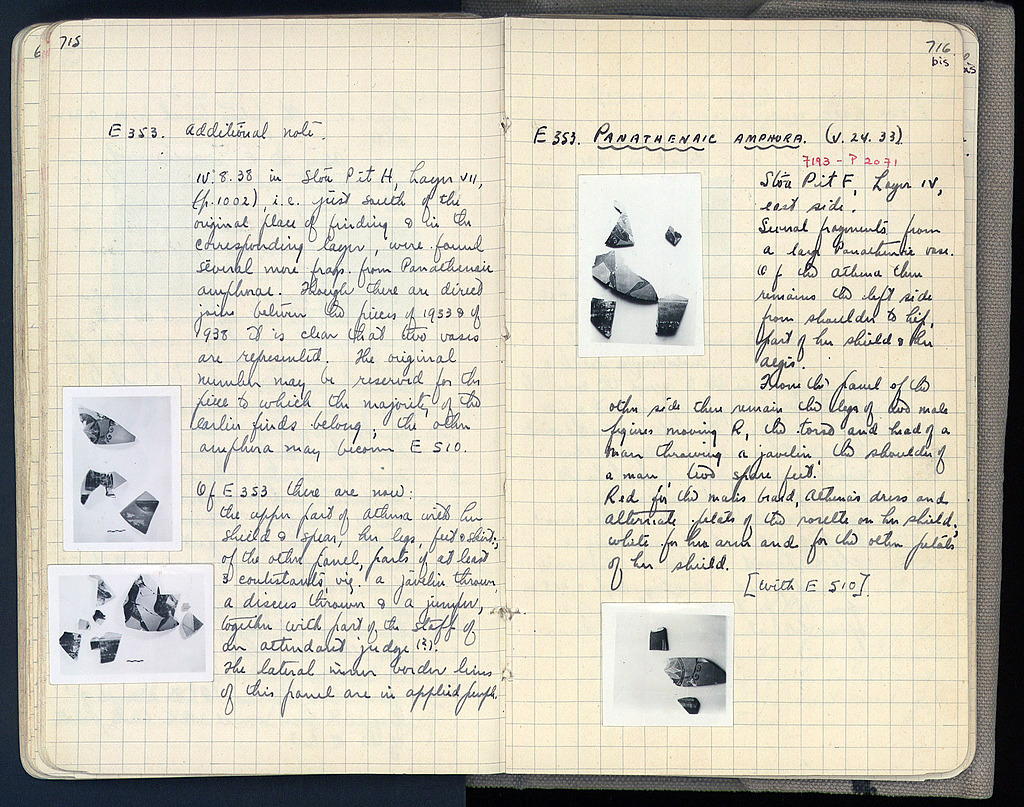 715
E 353. Additional note.
IV. 8. 38 in Stoa Pit H, Layer VII,
(p. 1002), i.e. just south of the
original place of finding & in the
corresponding layer, were found
several more frags. from Panathenaic
amphorae. Though there are direct
joins between the pieces of 1933 & of
1938 it is clear that two vases
are represented. The original
number may be reserved for the
piece to which the majority of the
earlier finds belong; the other
amphora may become E 510.
Of E 353 there are now:
the upper part of Athena with her
shield & spear, her legs, feet & skirt;
of the other panel, parts of at least
3 contestants, viz. a javelin thrower,
a discus thrower & a jumper,
together with part of the staff of
an attendant judge (?).
The lateral inner border lines
of this panel are in applied purple.
716
bis
E 353. PANATHENAIC AMPHORA. (V. 24. 33)
7193 - P 2071
Stoa Pit F, Layer IV,
east side.
Several fragments from
a large Panathenaic vase.
Of the Athena there
remains the left side
from shoulder to hip,
part of her shield & her
aegis.
From the panel of the
other side there remain the legs of two male
figures moving R, the torso and head of a
man throwing a javelin, the shoulder of
a man, two spare feet.
Red for the man's beard, Athena's dress and
alternate petals of the rosette on her shield;
white for her arm and for the other petals
of her shield.
[with E 510].